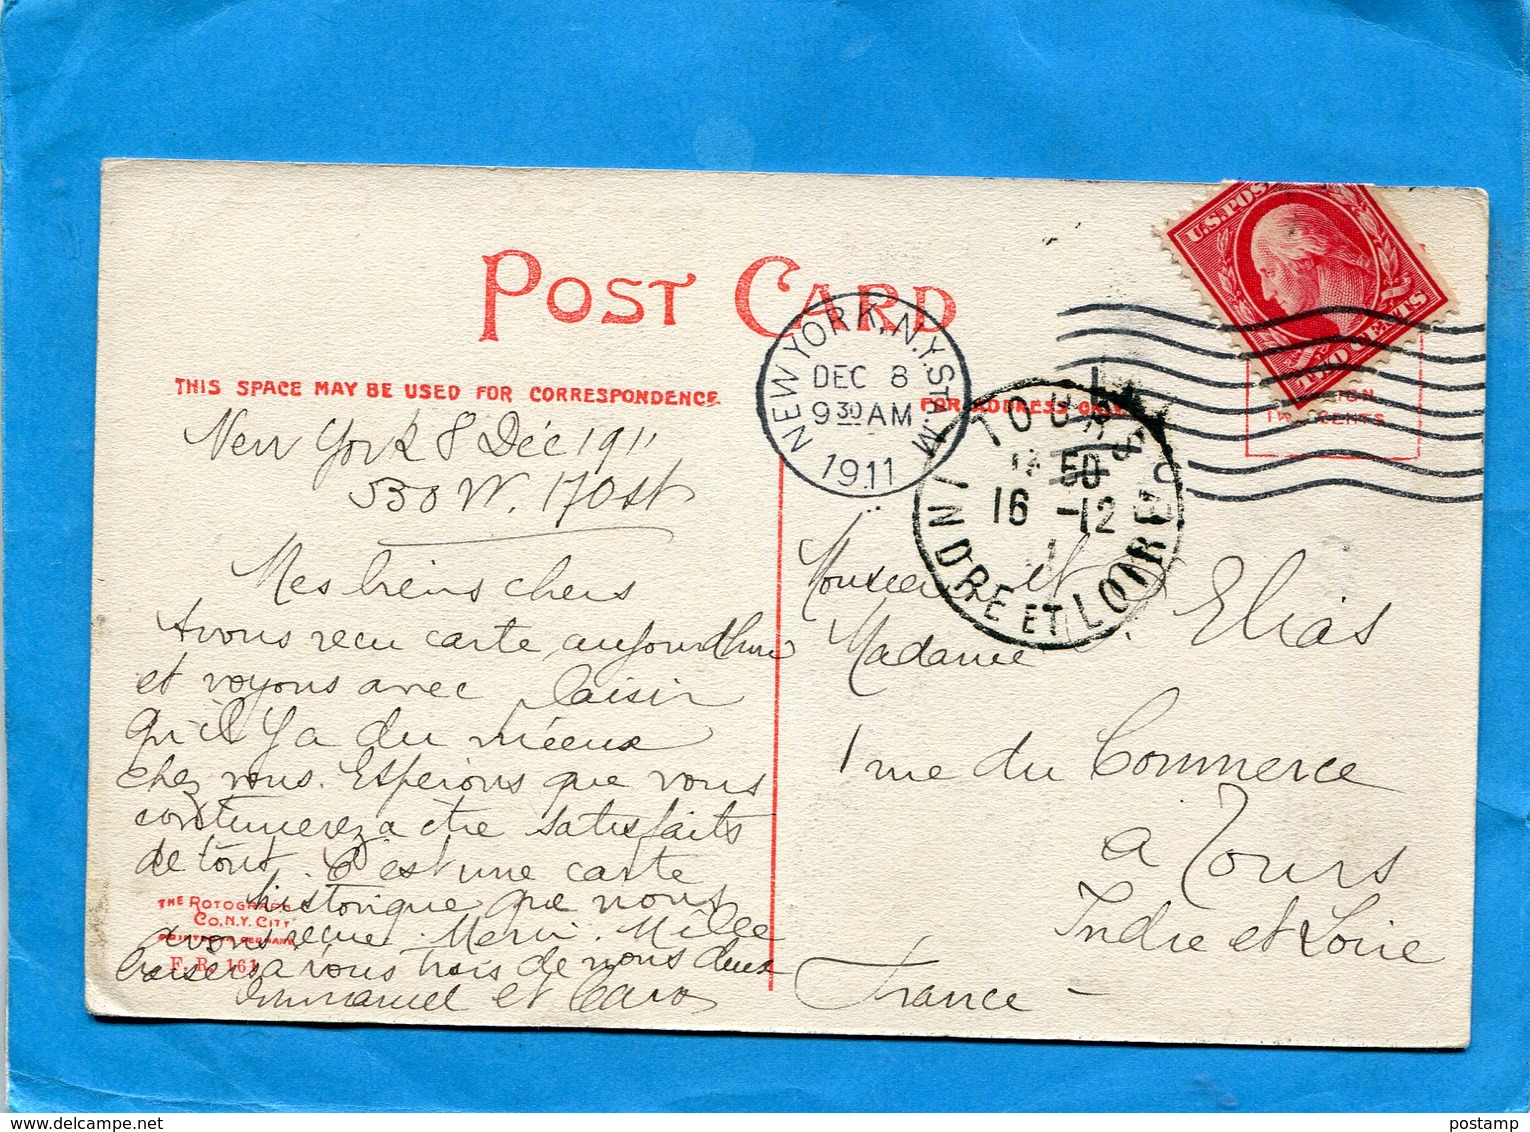 POST CARD
THIS SPACE MAY BE USED FOR CORRESPONDENCE
FOR ADDRESS ONLY
U.S. POS
TWO CENTS
NEW YORK, N.Y. STA. M
DEC 8
9 30 AM
1911
TOURS
50
16 -12
INDRE ET LOIRE
New York 8 Déc 1911
530 W. 170 St
Mes biens chers
Avons recu carte aujourdhui
et voyons avec plaisir
qu'il y a du mieux
chez vous. Esperons que vous
continuerez a etre satisfaits
de tout. C'est une carte
historique que nous
avons recue. Merci. Mille
baisers a vous trois de nous deux
Emmanuel et Caro
THE ROTOGRAPH
CO. N.Y. CITY
PRINTED IN GERMANY
F. R. 161
Monsieur et
Madame Elias
1 rue du Commerce
a Tours
Indre et Loire
France
postamp